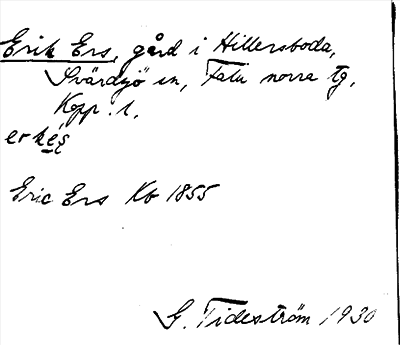 Erik Ers, gård i Hillersboda,
Svärdsjö sn, Falu norra tg,
Kopp. l.
erkes
Eric Ers Kb 1855
G. Tideström 1930